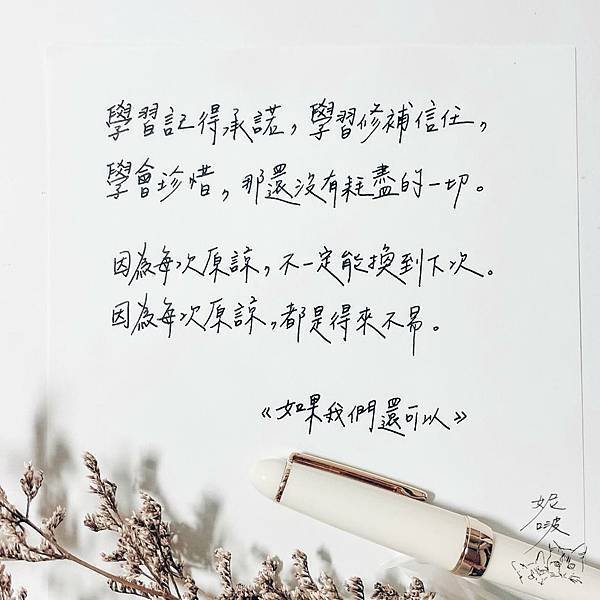 學習記得承諾，學習修補信任，
學會珍惜，那還沒有耗盡的一切。
因為每次原諒，不一定能換到下次。
因為每次原諒，都是得來不易。
《如果我們還可以》
妮
啵